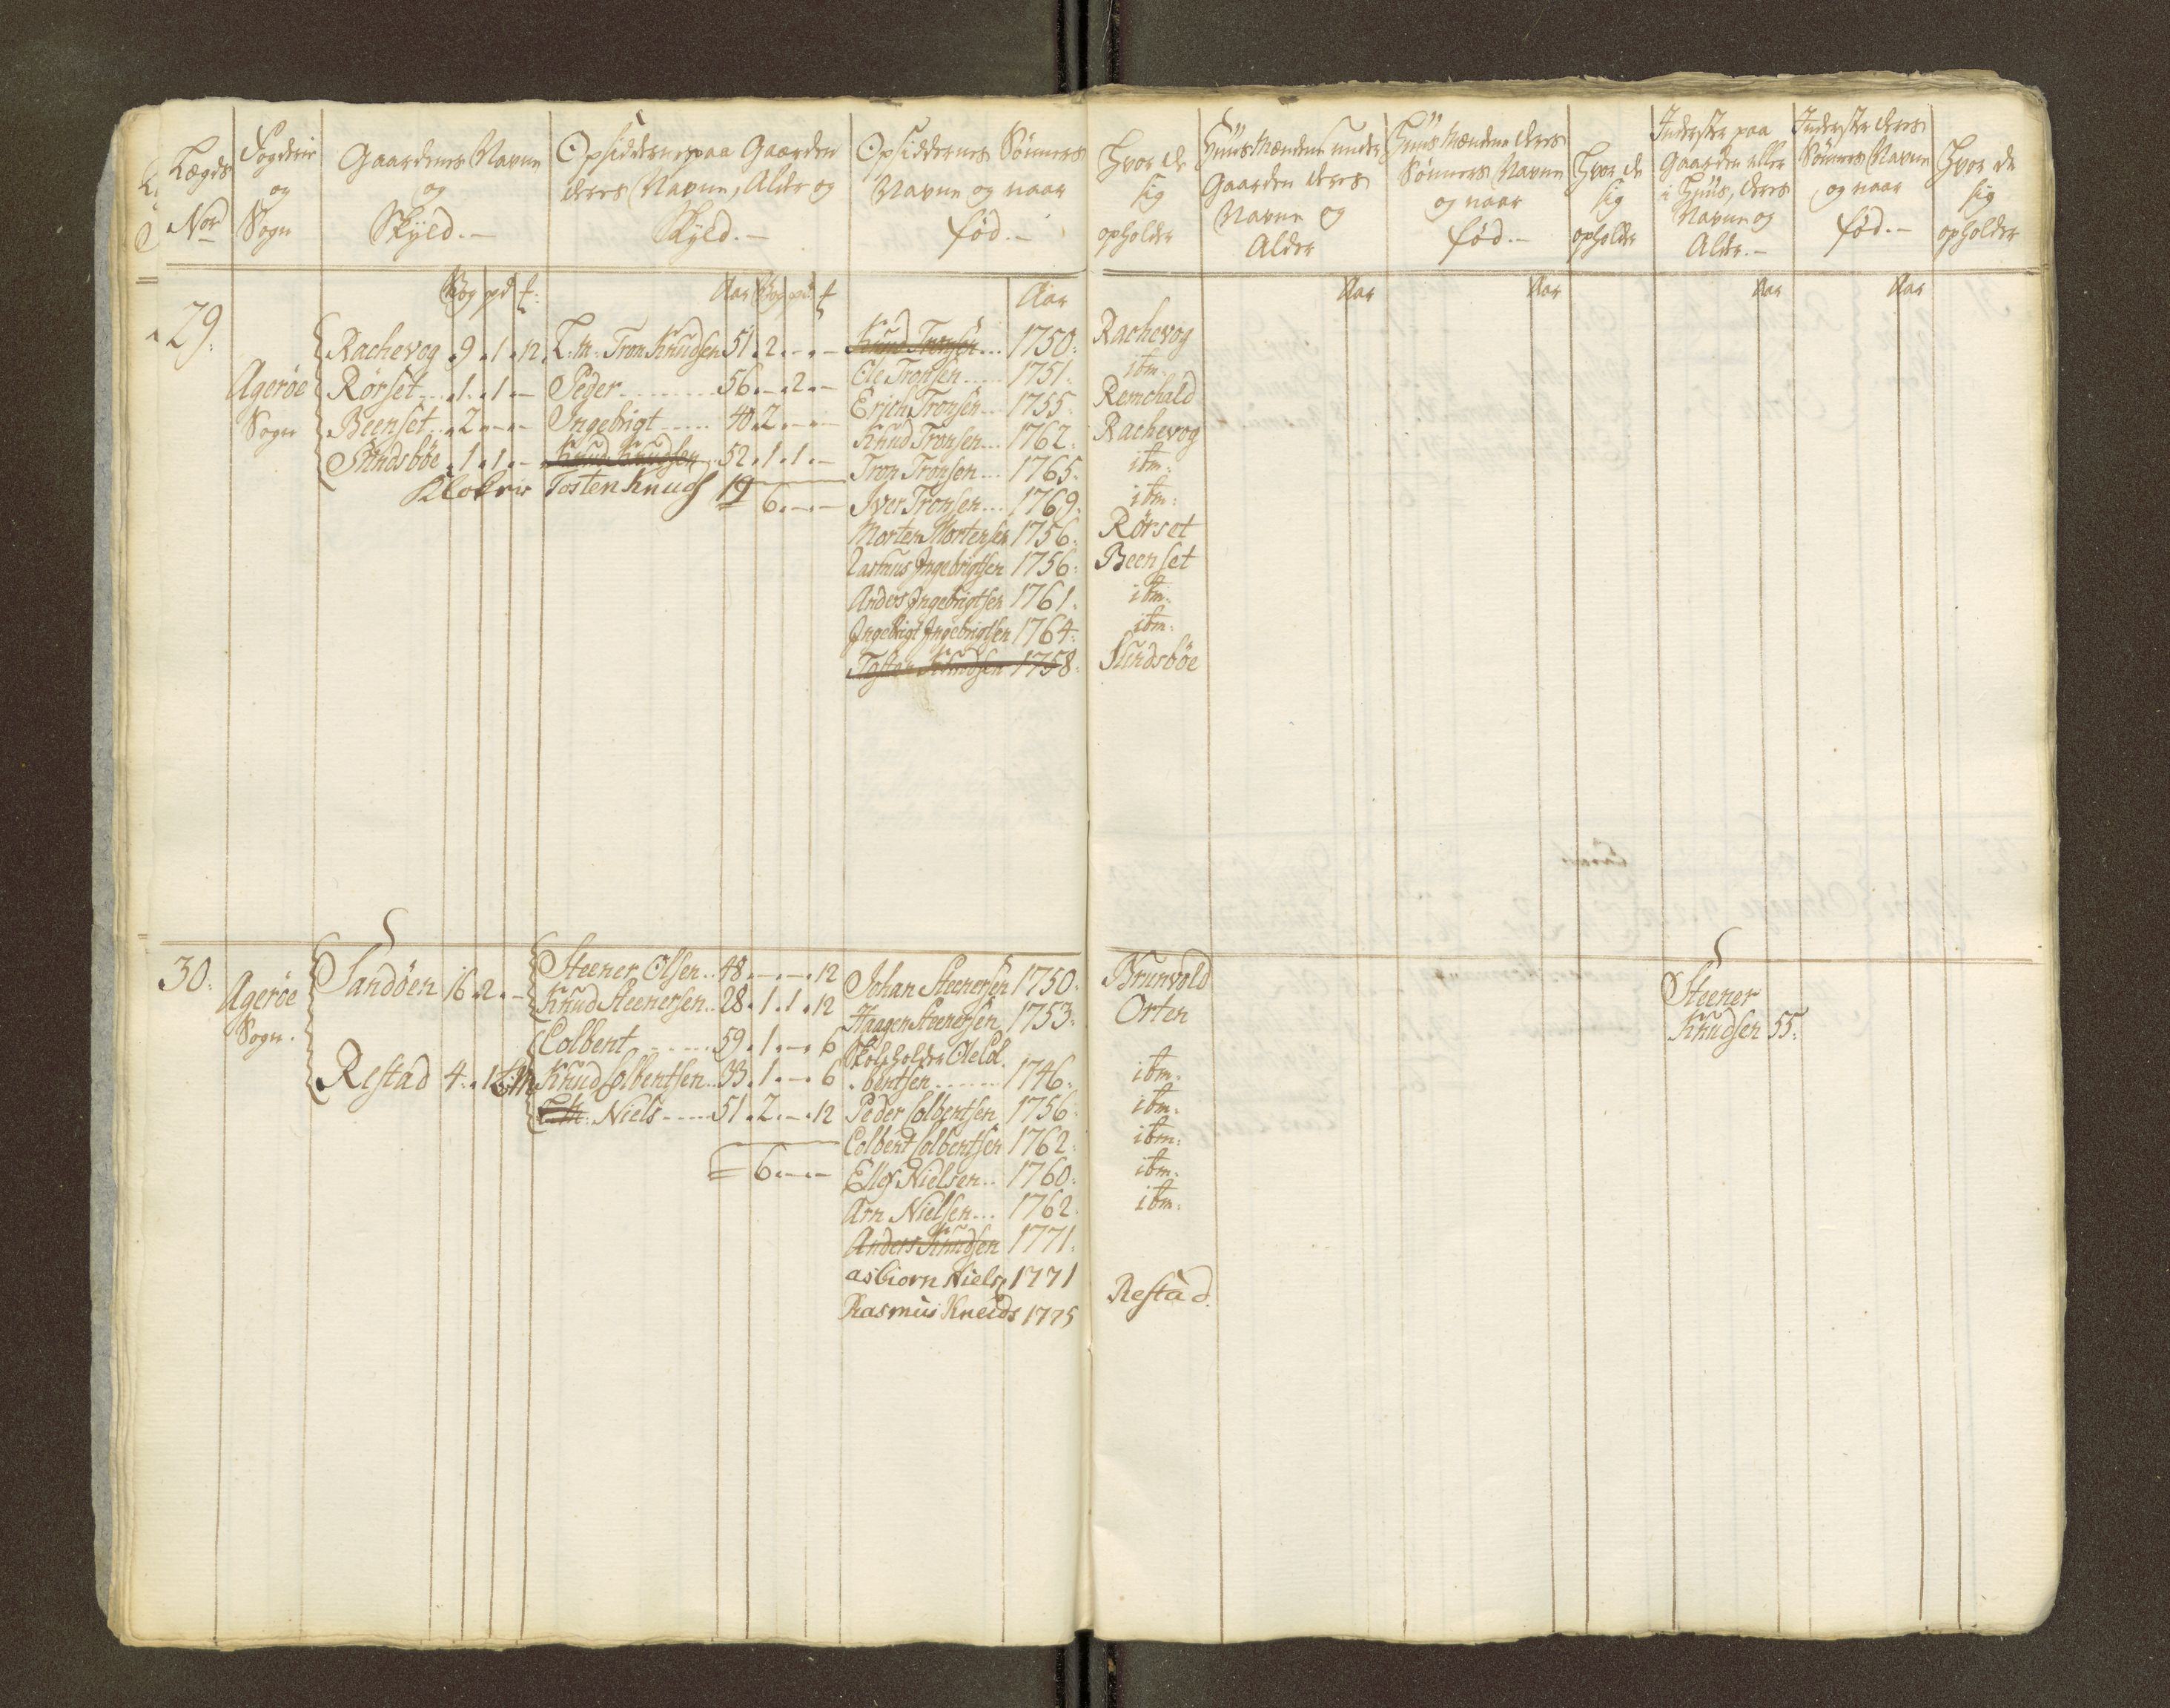 Lægds Nor
Fogderie og Sogn
Gaardens Navne og Skyld.-
Opsidderne paa Gaarden deres Navne, Alder og Skyld.-
Opsiddernes Sønners Navne og naar fød.-
Hvor de sig opholder
Huusmændene under Gaarden deres Navne og Alder
Huusmændene deres Sønners Navne og naar fød.-
Hvor de sig opholder
Inderster paa Gaarden eller i Huus, deres Navne og Alder.-
Inderster deres Sønners Navne og naar fød.-
Hvor de sig opholder
Aar
Aar
Aar
Aar
Aar
Aar
29.
Agerøe Sogn
Rachevog 9 . 1 . 12. L: m: Tron Knudsen 51. 2. - . -
Rörset 1 . 1 . - Peder 56. - . 2. -
Beenset 2 . - . - Ingebrigt 40. 2. - . -
Sundsböe 1 . 1 . - Knud Knudsen 52. 1. 1. -
Tosten Knuds 19
6. - . -
Knud Tronsen 1750. Rachevog
Ole Tronsen 1751. itm.
Erich Tronsen 1755. Remchald
Knud Tronsen 1762. Rachevog
Tron Tronsen 1765. itm.
Iver Tronsen 1769. itm.
Morten Mortensen 1756. Rörset
Rasmus Ingebrigtsen 1756. Beenset
Anders Ingebrigtsen 1761. itm.
Ingebrigt Ingebrigtsen 1764. itm.
Tosten Knudsen 1758. Sundsböe
30.
Agerøe Sogn.
Sandöen 16. 2. -
Restad 4. . 1
Steener Olsen 48. - . - . 12
Knud Steenersen 28. 1. 1. 12
Colbent 59. 1. - . 6
Knud Colbentsen 33. 1. - . 6
L: m: Niels 51. 2. - . 12
6. - . -
Johan Steenersen 1750. Brunvold
Haagen Steenersen 1753. Orten
Skoleholder Ole Colbentsen 1746. itm.
Peder Colbentsen 1756 itm.
Colbent Colbentsen 1762. itm.
Ellef Nielsen 1760. itm.
Arn Nielsen 1762. itm.
Anders Knudsen 1771.
asbiorn Niels 1771
Rasmus Knuds 1775 Restad.
Steener
Knudsen 55.